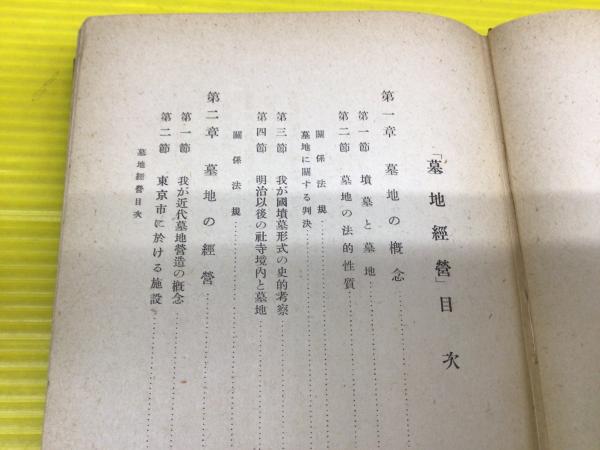 「墓地經營」目次
第一章　墓地の概念
第一節　墳墓と墓地
第二節　墓地の法的性質
關係法規
墓地に關する判決
第三節　我が國墳墓形式の史的考察
第四節　明治以後の社寺境內と墓地
關係法規
第二章　墓地の經營
第一節　我が近代墓地營造の概念
第二節　東京市に於ける施設
墓地經營目次